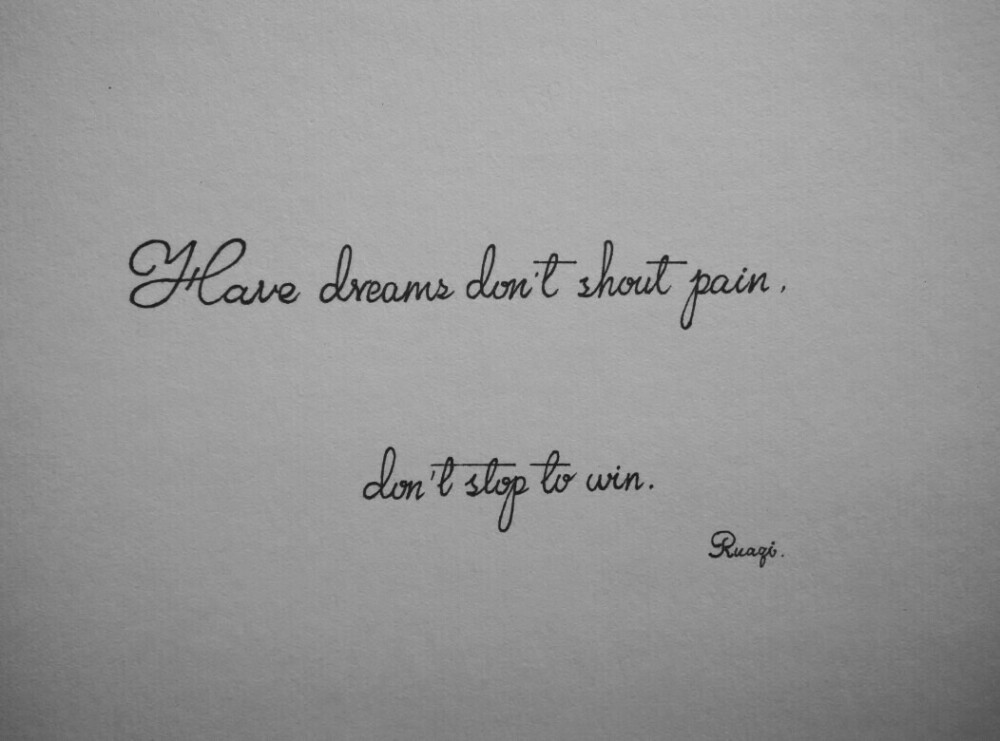 Have dreams don't shout pain.
don't stop to win.
Ruaqi.